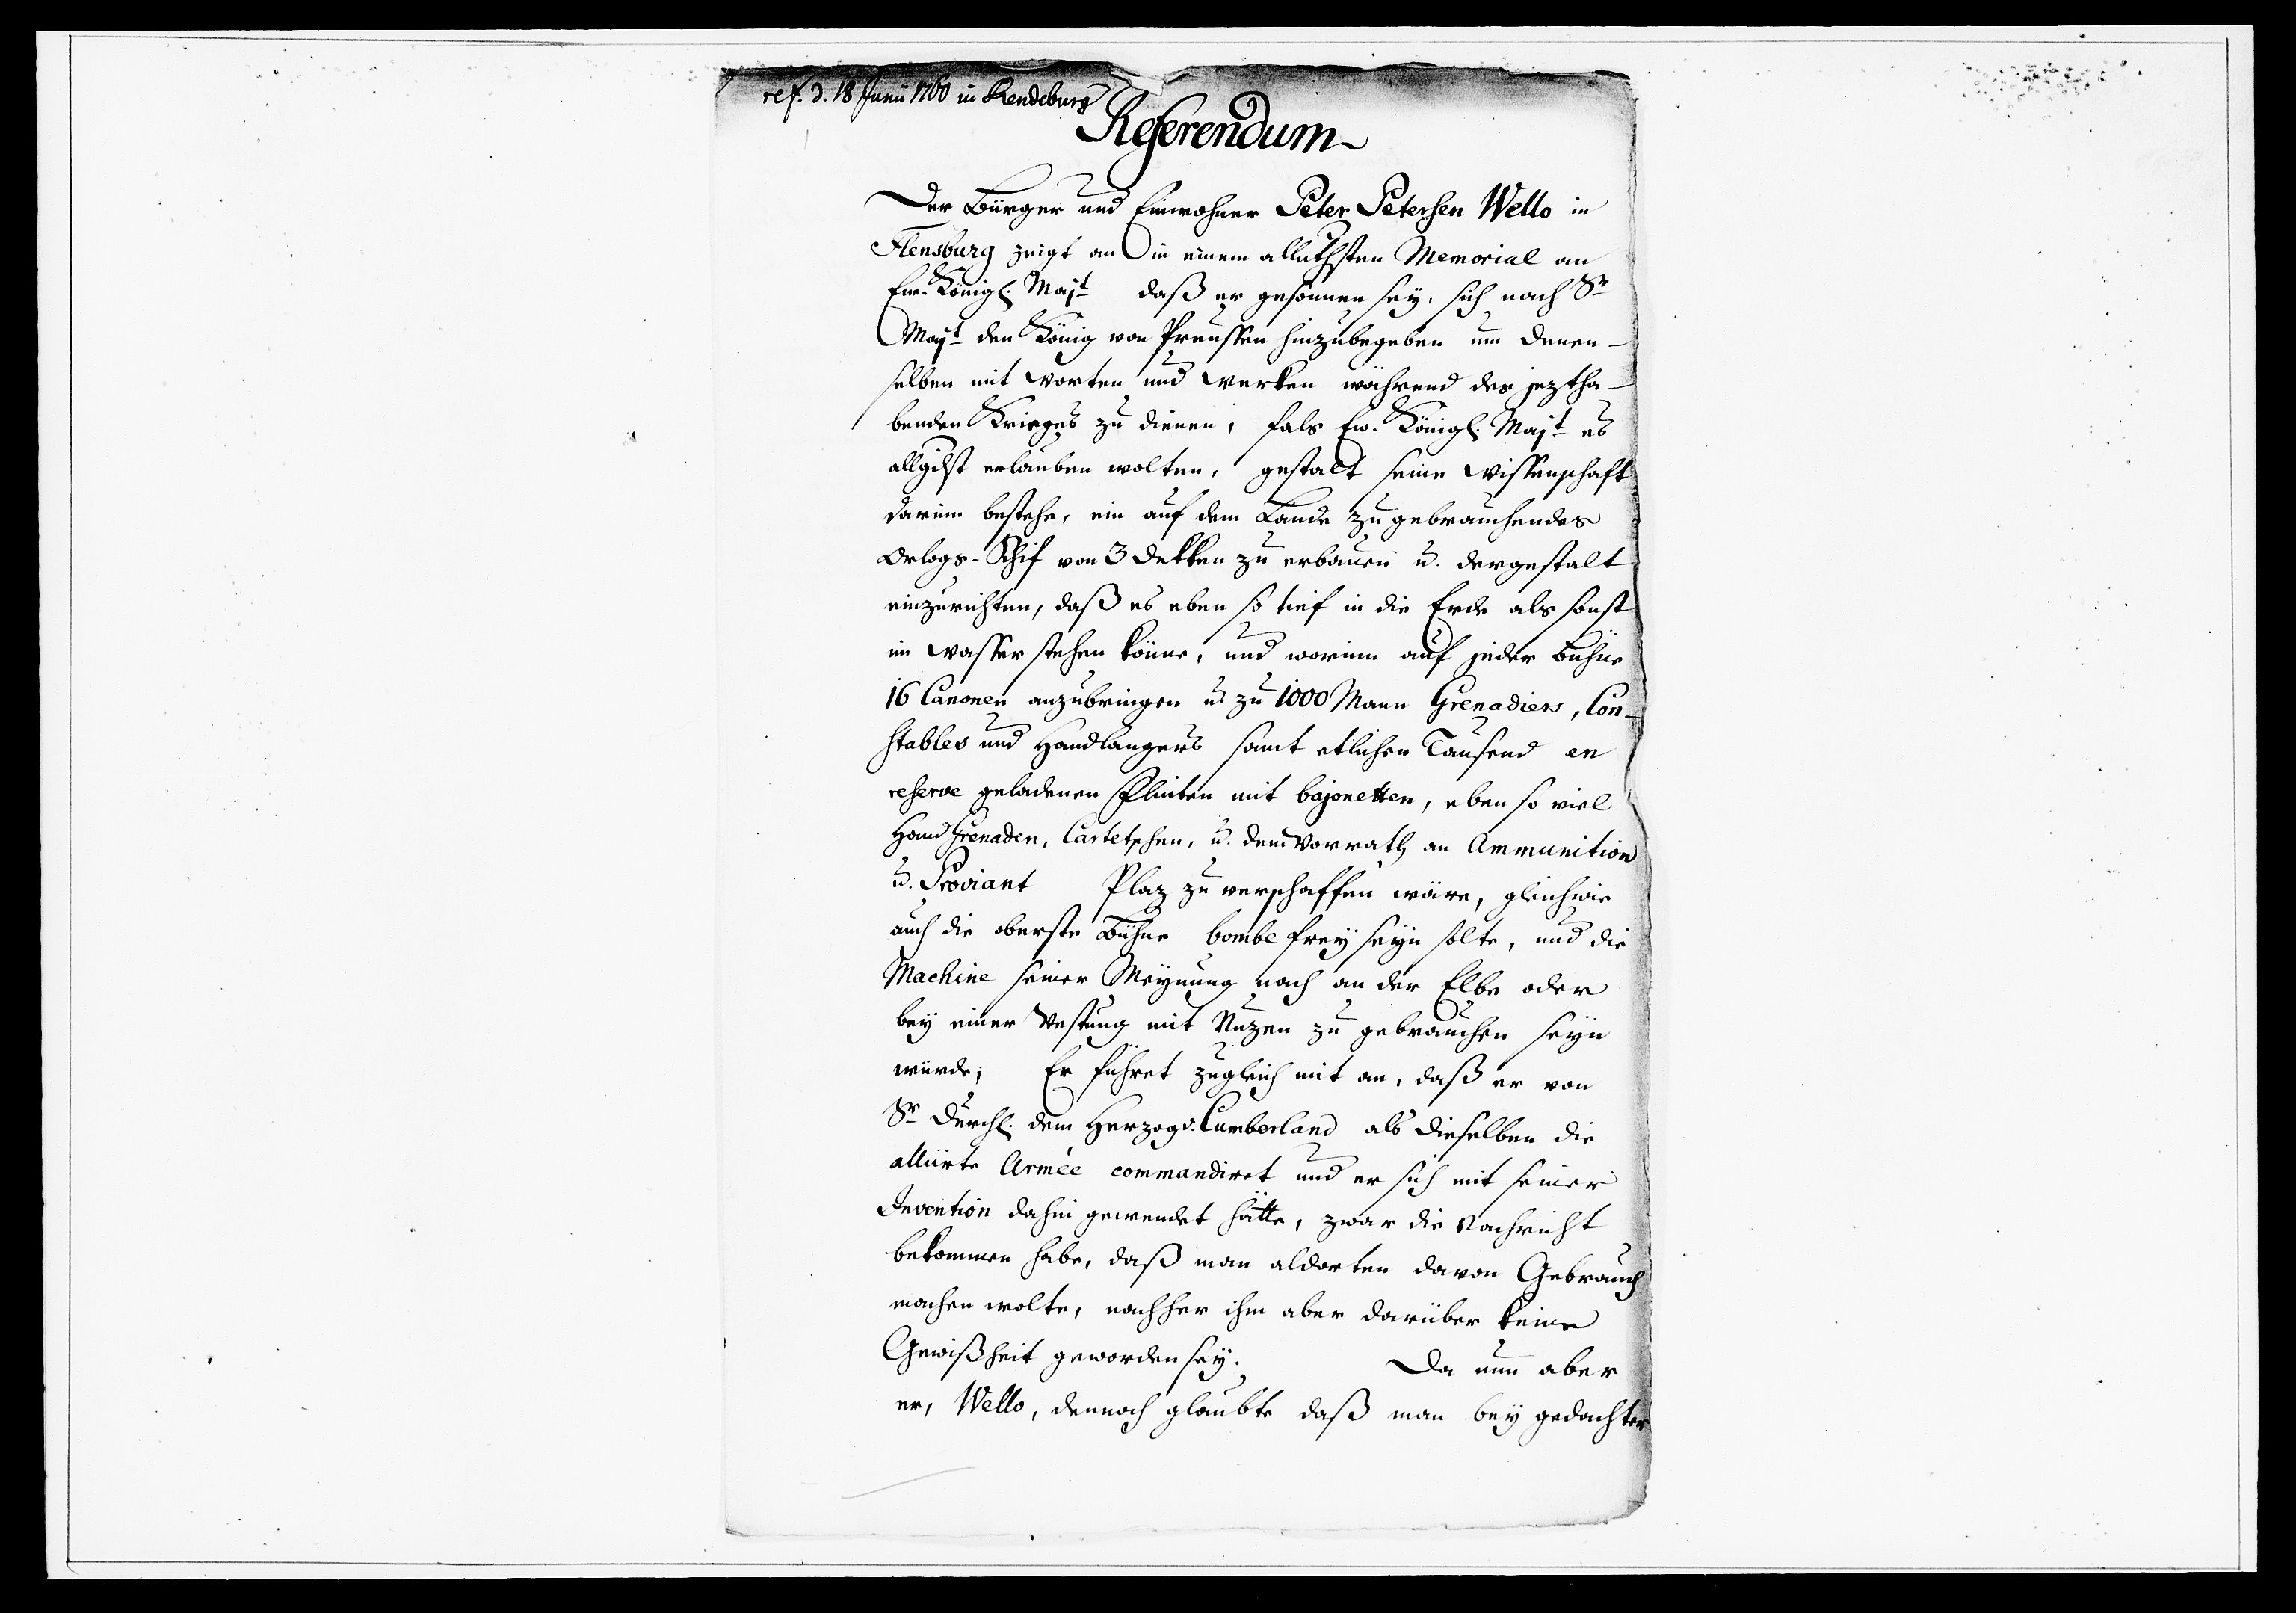 ref. d. 18 Junii 1760 in Rendsburg
Referendum
Der Bürger und Einwohner Peter Petersen Wello in
Flensburg zeigt an in einem alluthsten Memorial an
Ew. Königl. Majt daß er gesonnen sey, sich nach Sr
Majt den König von Preussen hinzubegeben um denen-
selben mit Worten und Werken während des jeztha-
benden Krieges zu dienen, fals Ew. Königl. Majt es
allgdst erlauben wolten, gestalt seine Wissenschaft
darinn bestehe, ein auf dem Lande zu gebrauchendes
Orlogs-Schif von 3 Dekken zu erbauen u. dergestalt
einzurichten, daß es eben so tief in die Erde als sonst
im Wasser stehen könne, und worinn auf jeder Bühne
16 Canonen anzubringen u. zu 1000 Mann Grenadiers, Con-
stables und Handlangers samt etlichen Tausend en
reserve geladenen Flinten mit bajonetten, eben so viel
Hand Grenaden, Cartetschen, u. dem Vorrath an Ammunition
u. Proviant Plaz zu verschaffen wäre, gleichwie
auch die oberste Bühne bombe frey seyn solte, und die
Machine seiner Meynung nach an der Elbe oder
bey einer Vestung mit Nuzen zu gebrauchen seyn
würde; Er führet zugleich mit an, daß er von
Sr Durchl. dem Herzog v. Cumberland als dieselben die
alliirte Armée commandiret und er sich mit seiner
Invention dahin gewendet hätte, zwar die Nachricht
bekommen habe, daß man aldorten davon Gebrauch
machen wolte, nachher ihm aber darüber keine
Gewißheit geworden sey. Da nun aber
er, Wello, dennoch glaubte daß man bey gedachter